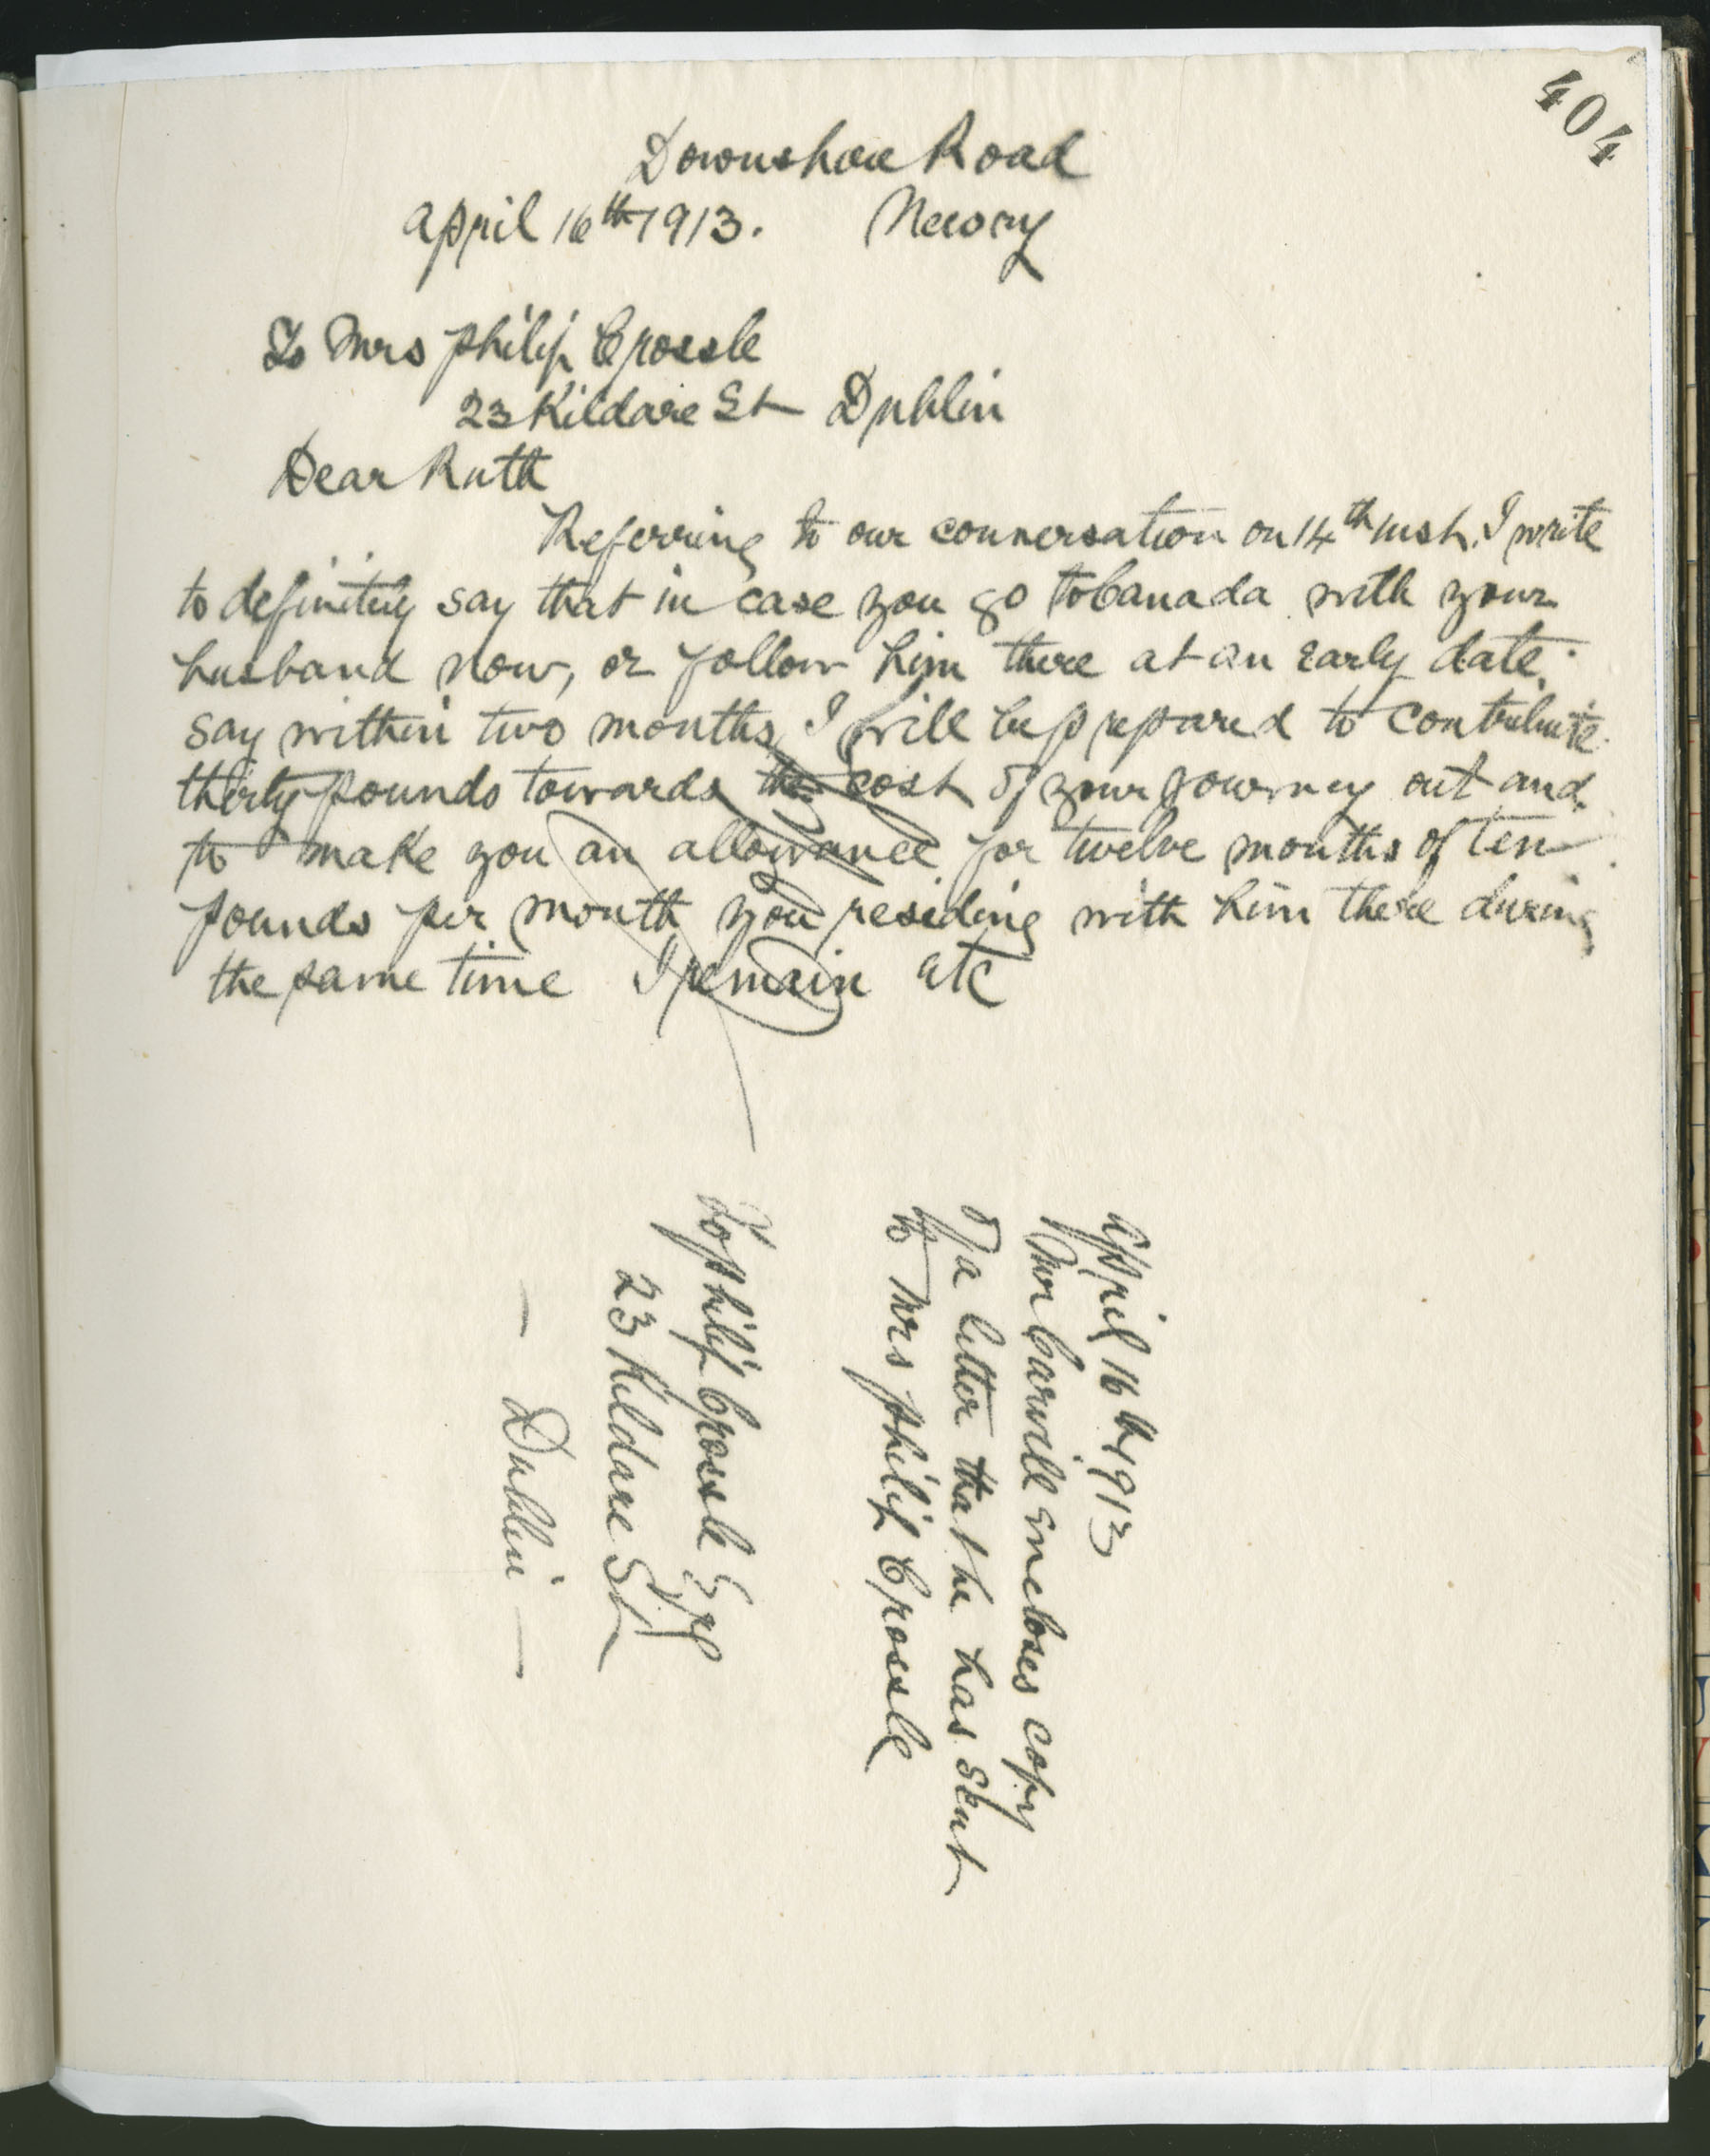 404
Downshire Road
April 16th 1913. Newry
To Mrs Philip Crossle
23 Kildare St Dublin
Dear Ruth
Referring to our conversation on 14th inst. I write
to definitely say that in case you go to Canada with your
husband now, or follow him there at an early date,
say within two months, I will be prepared to contribute
thirty pounds towards the cost of your journey out and
to make you an allowance for twelve months of ten
pounds per month you residing with him there during
the same time I remain etc
April 16th 1913
Mr Carvill encloses copy
of a letter that he has sent
to Mrs Philip Crossle
To Philip Crossle Esq
23 Kildare St
— Dublin —